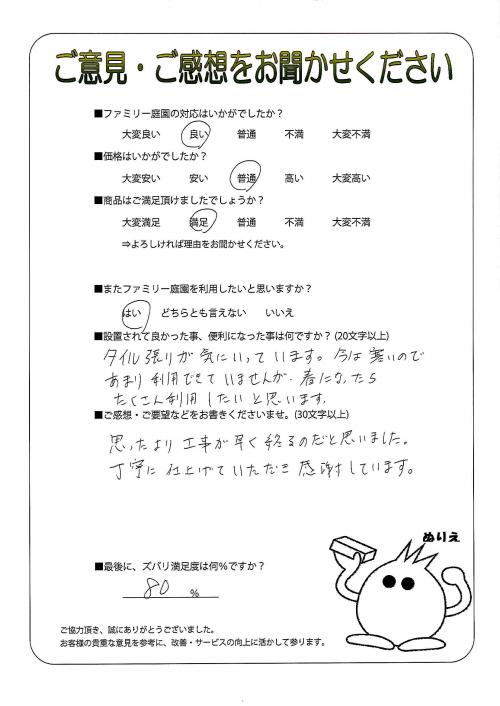 ご意見・ご感想をお聞かせください
■ファミリー庭園の対応はいかがでしたか？
大変良い 良い 普通 不満 大変不満
■価格はいかがでしたか？
大変安い 安い 普通 高い 大変高い
■商品はご満足頂けましたでしょうか？
大変満足 満足 普通 不満 大変不満
⇒よろしければ理由をお聞かせください。
■またファミリー庭園を利用したいと思いますか？
はい どちらとも言えない いいえ
■設置されて良かった事、便利になった事は何ですか？(20文字以上)
タイル張りが気にいっています。今は寒いので
あまり利用できていませんが、春になったら
たくさん利用したいと思います。
■ご感想・ご要望などをお書きくださいませ。(30文字以上)
思ったより工事が早く終るのだと思いました。
丁寧に仕上げていただき感謝しています。
ぬりえ
■最後に、ズバリ満足度は何％ですか？
80 ％
ご協力頂き、誠にありがとうございました。
お客様の貴重な意見を参考に、改善・サービスの向上に活かして参ります。